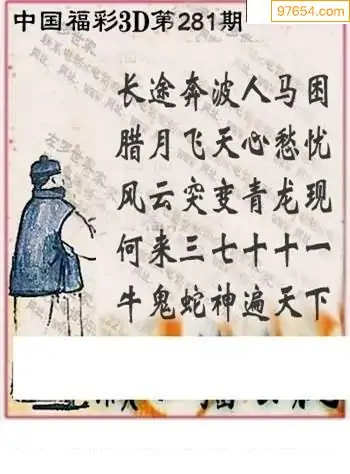 97654.com
中国福彩3D第281期
长途奔波人马困
腊月飞天心愁忧
风云突变青龙现
何来三七十十一
牛鬼蛇神遍天下